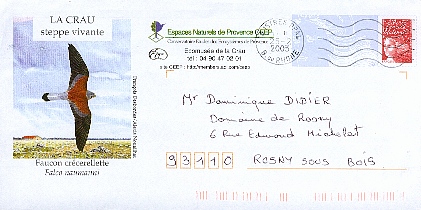 LA CRAU
steppe vivante
Faucon crécerellette
Falco naumanni
Espaces Naturels de Provence CEEP
Conservatoire Etudes des Ecosystèmes de Provence
Ecomusée de la Crau
tel : 04 90 47 02 01
site CEEP : http://members.aol.com/ceep
2003
Mr Dominique DIDIER
Domaine de Rosny
6 Rue Edmond Michelet
93110 ROSNY SOUS BOIS